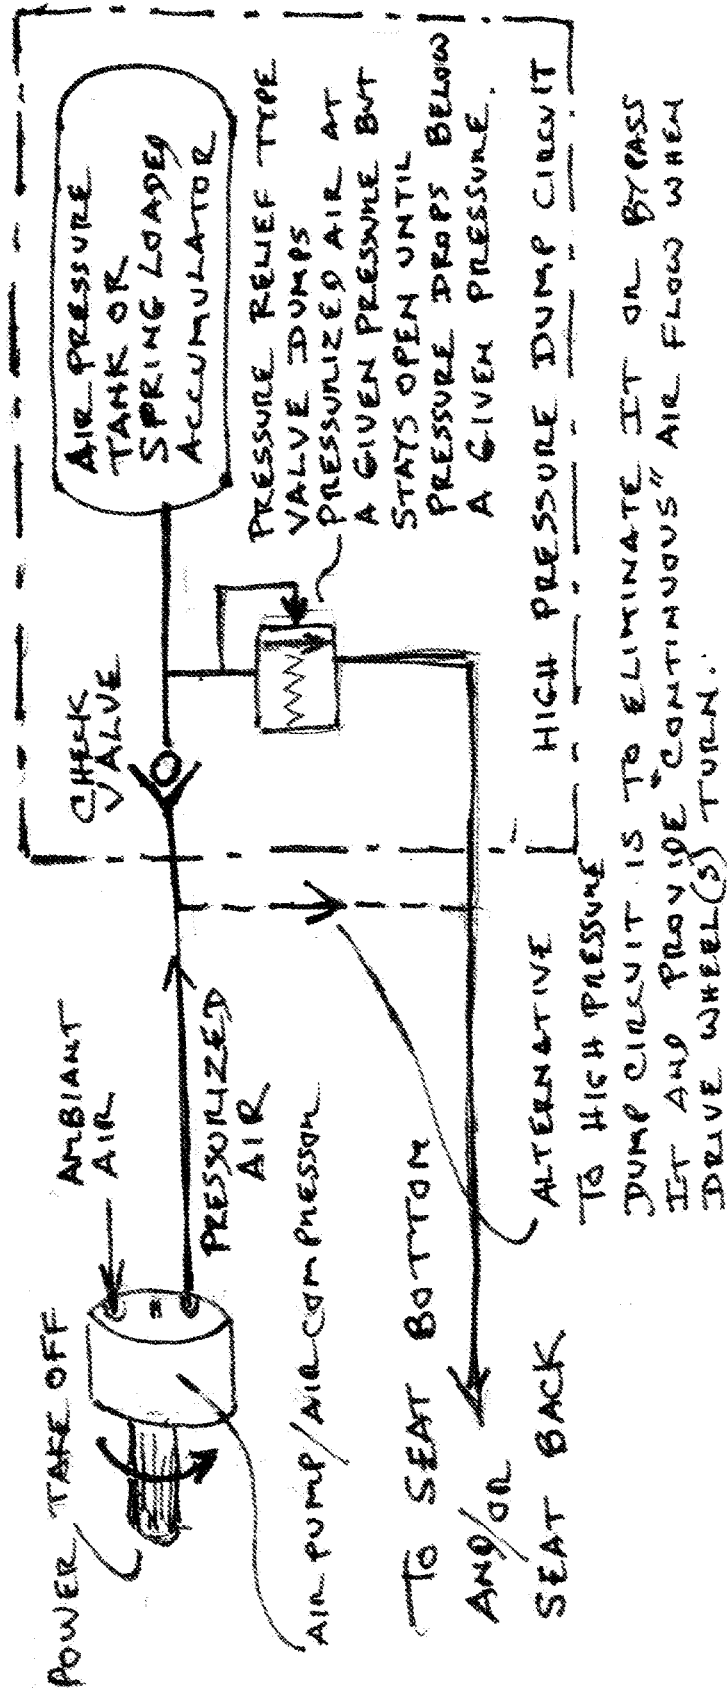 POWER TAKE OFF
AMBIANT
AIR
PRESSURIZED
AIR
AIR PUMP/AIR COMPRESSOR
CHECK
VALVE
AIR PRESSURE
TANK OR
SPRING LOADED
ACCUMULATOR
PRESSURE RELIEF TYPE
VALVE DUMPS
PRESSURIZED AIR AT
A GIVEN PRESSURE BUT
STAYS OPEN UNTIL
PRESSURE DROPS BELOW
A GIVEN PRESSURE.
HIGH PRESSURE DUMP CIRCUIT
TO SEAT BOTTOM
AND/OR
SEAT BACK
ALTERNATIVE
TO HIGH PRESSURE
DUMP CIRCUIT IS TO ELIMINATE IT OR BYPASS
IT AND PROVIDE "CONTINUOUS" AIR FLOW WHEN
DRIVE WHEEL(S) TURN.